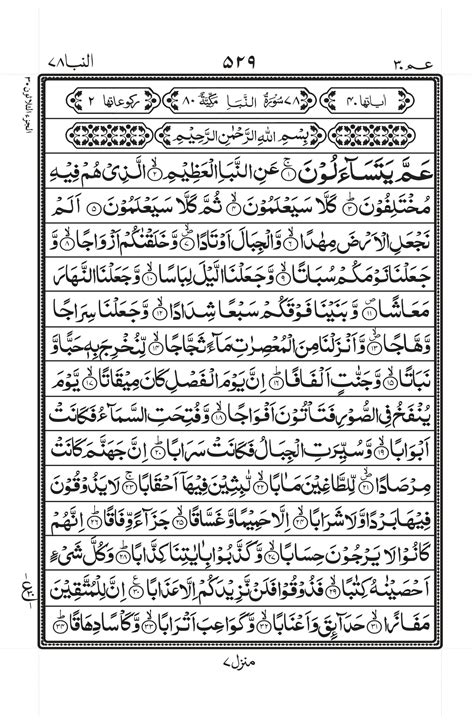 عم ٣٠ ٥٢٩ النبا ٧٨
اٰیاتها ٤٠ ٧٨ سُوْرَةُ النَّبَاِ مَكِّيَّةٌ ٨٠ رکوعاتها ٢
بِسْمِ اللّٰهِ الرَّحْمٰنِ الرَّحِيْمِ
عَمَّ يَتَسَآءَلُوْنَ ۚ﴿١﴾ عَنِ النَّبَاِ الْعَظِيْمِ ۙ﴿٢﴾ الَّذِىْ هُمْ فِيْهِ
مُخْتَلِفُوْنَ ؕ﴿٣﴾ كَلَّا سَيَعْلَمُوْنَ ۙ﴿٤﴾ ثُمَّ كَلَّا سَيَعْلَمُوْنَ ﴿٥﴾ اَلَمْ
نَجْعَلِ الْاَرْضَ مِهٰدًا ۙ﴿٦﴾ وَّالْجِبَالَ اَوْتَادًا ۪ۙ﴿٧﴾ وَّخَلَقْنٰكُمْ اَزْوَاجًا ۙ﴿٨﴾ وَّ
جَعَلْنَا نَوْمَكُمْ سُبَاتًا ۙ﴿٩﴾ وَّجَعَلْنَا الَّيْلَ لِبَاسًا ۙ﴿١٠﴾ وَّجَعَلْنَا النَّهَارَ
مَعَاشًا ۪﴿١١﴾ وَّبَنَيْنَا فَوْقَكُمْ سَبْعًا شِدَادًا ۙ﴿١٢﴾ وَّجَعَلْنَا سِرَاجًا
وَّهَّاجًا ۪ۙ﴿١٣﴾ وَّاَنْزَلْنَا مِنَ الْمُعْصِرٰتِ مَآءً ثَجَّاجًا ۙ﴿١٤﴾ لِّنُخْرِجَ بِهٖ حَبًّا وَّ
نَبَاتًا ۙ﴿١٥﴾ وَّجَنّٰتٍ اَلْفَافًا ؕ﴿١٦﴾ اِنَّ يَوْمَ الْفَصْلِ كَانَ مِيْقَاتًا ۙ﴿١٧﴾ يَّوْمَ
يُنْفَخُ فِى الصُّوْرِ فَتَاْتُوْنَ اَفْوَاجًا ۙ﴿١٨﴾ وَّفُتِحَتِ السَّمَآءُ فَكَانَتْ
اَبْوَابًا ۙ﴿١٩﴾ وَّسُيِّرَتِ الْجِبَالُ فَكَانَتْ سَرَابًا ؕ﴿٢٠﴾ اِنَّ جَهَنَّمَ كَانَتْ
مِرْصَادًا ۪ۙ﴿٢١﴾ لِّلطَّاغِيْنَ مَاٰبًا ۙ﴿٢٢﴾ لّٰبِثِيْنَ فِيْهَاۤ اَحْقَابًا ۚ﴿٢٣﴾ لَا يَذُوْقُوْنَ
فِيْهَا بَرْدًا وَّلَا شَرَابًا ۙ﴿٢٤﴾ اِلَّا حَمِيْمًا وَّغَسَّاقًا ۙ﴿٢٥﴾ جَزَآءً وِّفَاقًا ؕ﴿٢٦﴾ اِنَّهُمْ
كَانُوْا لَا يَرْجُوْنَ حِسَابًا ۙ﴿٢٧﴾ وَّكَذَّبُوْا بِاٰيٰتِنَا كِذَّابًا ؕ﴿٢٨﴾ وَكُلَّ شَىْءٍ
اَحْصَيْنٰهُ كِتٰبًا ۙ﴿٢٩﴾ فَذُوْقُوْا فَلَنْ نَّزِيْدَكُمْ اِلَّا عَذَابًا ﴿٣٠﴾ اِنَّ لِلْمُتَّقِيْنَ
مَفَازًا ۙ﴿٣١﴾ حَدَآئِقَ وَاَعْنَابًا ۙ﴿٣٢﴾ وَّكَوَاعِبَ اَتْرَابًا ۙ﴿٣٣﴾ وَّكَاْسًا دِهَاقًا ؕ﴿٣٤﴾
منزل ٧